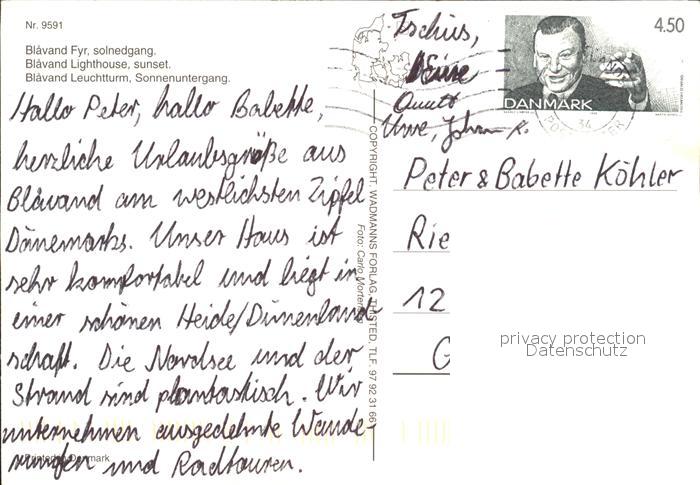 Nr. 9591
Blåvand Fyr, solnedgang.
Blåvand Lighthouse, sunset.
Blåvand Leuchtturm, Sonnenuntergang.
Hallo Peter, hallo Babette,
herzliche Urlaubsgrüße aus
Blåvand am westlichsten Zipfel
Dänemarks. Unser Haus ist
sehr komfortabel und liegt in
einer schönen Heide/Dünenland-
schaft. Die Nordsee und der
Strand sind phantastisch. Wir
unternehmen ausgedehnte Wande-
rungen und Radtouren.
Printed in Denmark
COPYRIGHT. WADMANNS FORLAG, THISTED, TLF. 97 92 31 66
Foto: Carlo Mortensen
Tschüs,
Uwe,
4.50
DANMARK
34
Peter & Babette Köhler
Rie
12
G
privacy protection
Datenschutz